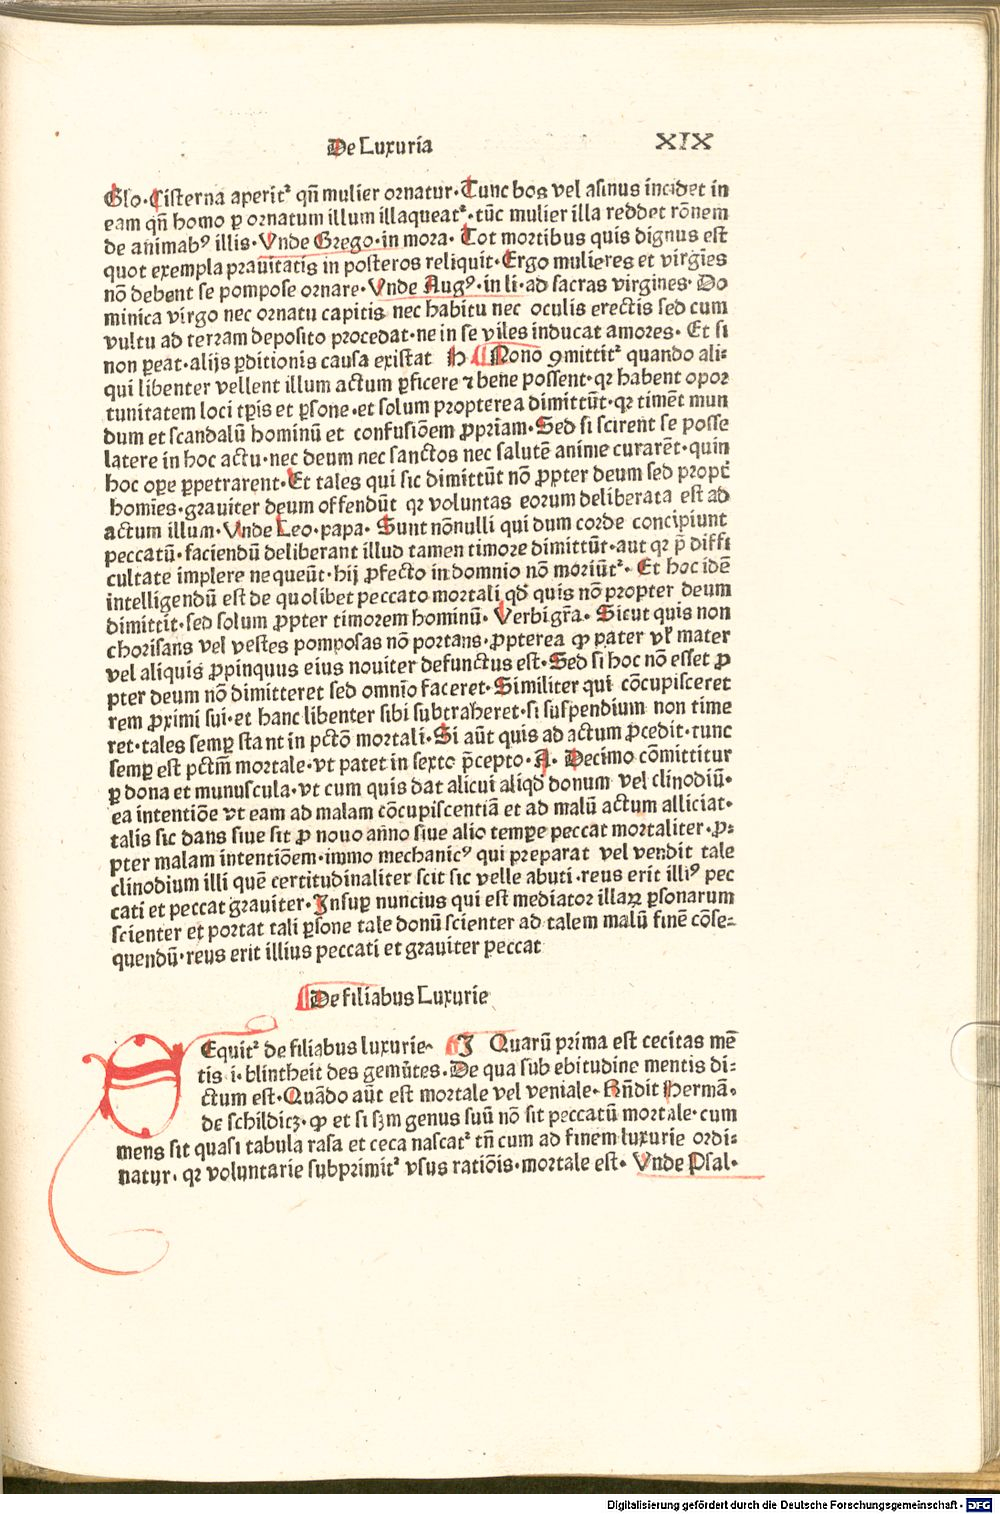 De Luxuria
XIX
Glo·Cisterna aperit᷑ qn̄ mulier ornatur·Tunc bos vel asinus incidet in
eam qn̄ homo ꝑ ornatum illum illaqueat᷑·tūc mulier illa reddet rōnem
de animabꝰ illis·Vnde Grego·in mora· Tot mortibus quis dignus est
quot exempla prauitatis in posteros reliquit·Ergo mulieres et virgīes
nō debent se pompose ornare·Vnde Augꝰ·in li·ad sacras virgines· Do
minica virgo nec ornatu capitis nec habitu nec oculis erectis sed cum
vultu ad terram deposito procedat·ne in se viles inducat amores· Et si
non ꝑeat·alijs ꝑditionis causa existat H Nono ꝯmittit᷑ quando ali:
qui libenter vellent illum actum ꝑficere ⁊ bene possent·qꝛ habent opoꝛ
tunitatem loci tp̄is et ꝑsone·et solum propterea dimittūt·qꝛ timēt mun
dum et scandalū hominū et confusiōem ꝓpriam·Sed si scirent se posse
latere in hoc actu·nec deum nec sanctos nec salutē anime curarēt·quin
hoc oꝑe ꝑpetrarent·Et tales qui sic dimittūt nō ꝓpter deum sed propt̄
homīes·grauiter deum offendūt qꝛ voluntas eorum deliberata est ad
actum illum·Vnde Leo·papa· Sunt nōnulli qui dum corde concipiunt
peccatū·faciendū deliberant illud tamen timore dimittūt·aut qꝛ p̄ diffi
cultate implere nequeūt·hij ꝓfecto in domnio nō moriūt᷑· Et hoc idē
intelligendū est de quolibet peccato mortali qd̄ quis nō propter deum
dimittit·sed solum ꝓpter timorem hominū· Verbigr̄a· Sicut quis non
chorisans vel vestes pomposas nō portans·ꝓpterea ꝙ pater vl̄ mater
vel aliquis ꝓpinquus eius nouiter defunctus est·Sed si hoc nō esset ꝓ
pter deum nō dimitteret sed omnīo faceret·Similiter qui cōcupisceret
rem ꝓximi sui·et hanc libenter sibi subtraheret·si suspendium non time
ret·tales semꝑ stant in pctō mortali·Si aūt quis ad actum ꝓcedit·tunc
semꝑ est pctm̄ mortale·vt patet in sexto p̄cepto·A· Decimo cōmittitur
ꝑ dona et munuscula·vt cum quis dat alicui aliqd̄ donum vel clinodiū·
ea intentiōe vt eam ad malam cōcupiscentiā et ad malū actum alliciat·
talis sic dans siue sit ꝓ nouo anno siue alio temꝑe peccat mortaliter·ꝓ:
pter malam intentiōem·immo mechanicꝰ qui preparat vel vendit tale
clinodium illi quē certitudinaliter scit sic velle abuti·reus erit illiꝰ pec
cati et peccat grauiter·Insuꝑ nuncius qui est mediator illaꝝ ꝑsonarum
scienter et portat tali ꝑsone tale donū scienter ad talem malū finē cōse:
quendū·reus erit illius peccati et grauiter peccat
De filiabus Luxurie
SEquit᷑ de filiabus luxurie· I Quarū prima est cecitas mē
tis·i·blintheit des gemūtes·De qua sub ebitudine mentis di:
ctum est·Quādo aūt est mortale vel veniale· Rn̄dit Hermā·
de schildicz·ꝙ et si sꝫm genus suū nō sit peccatū mortale·cum
mens sit quasi tabula rasa et ceca nascat᷑ tn̄ cum ad finem luxurie ordi:
natur·qꝛ voluntarie subprimit᷑ vsus ratiōis·mortale est· Vnde Psal·
Digitalisierung gefördert durch die Deutsche Forschungsgemeinschaft · DFG